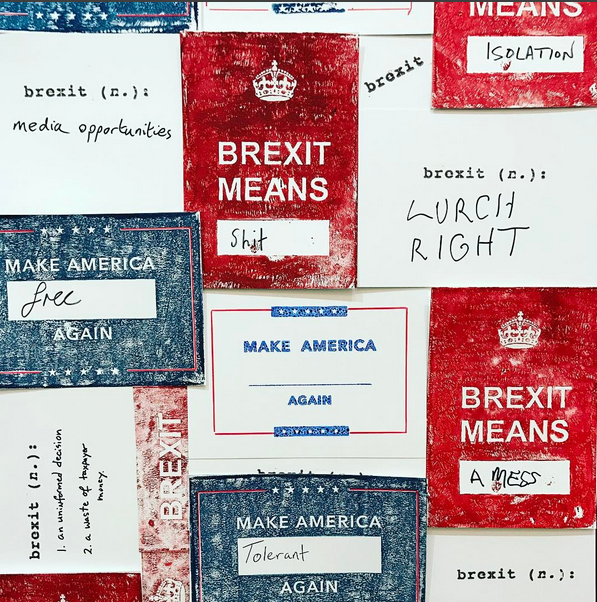 MEANS
ISOLATION
brexit (n.):
media opportunities
BREXIT
MEANS
Shit
brexit
brexit (n.):
LURCH
RIGHT
MAKE AMERICA
free
AGAIN
MAKE AMERICA
AGAIN
BREXIT
MEANS
A MESS
brexit (n.):
1. an uninformed decision
2. a waste of taxpayer
money.
BREXIT
MAKE AMERICA
Tolerant
AGAIN
brexit (n.):